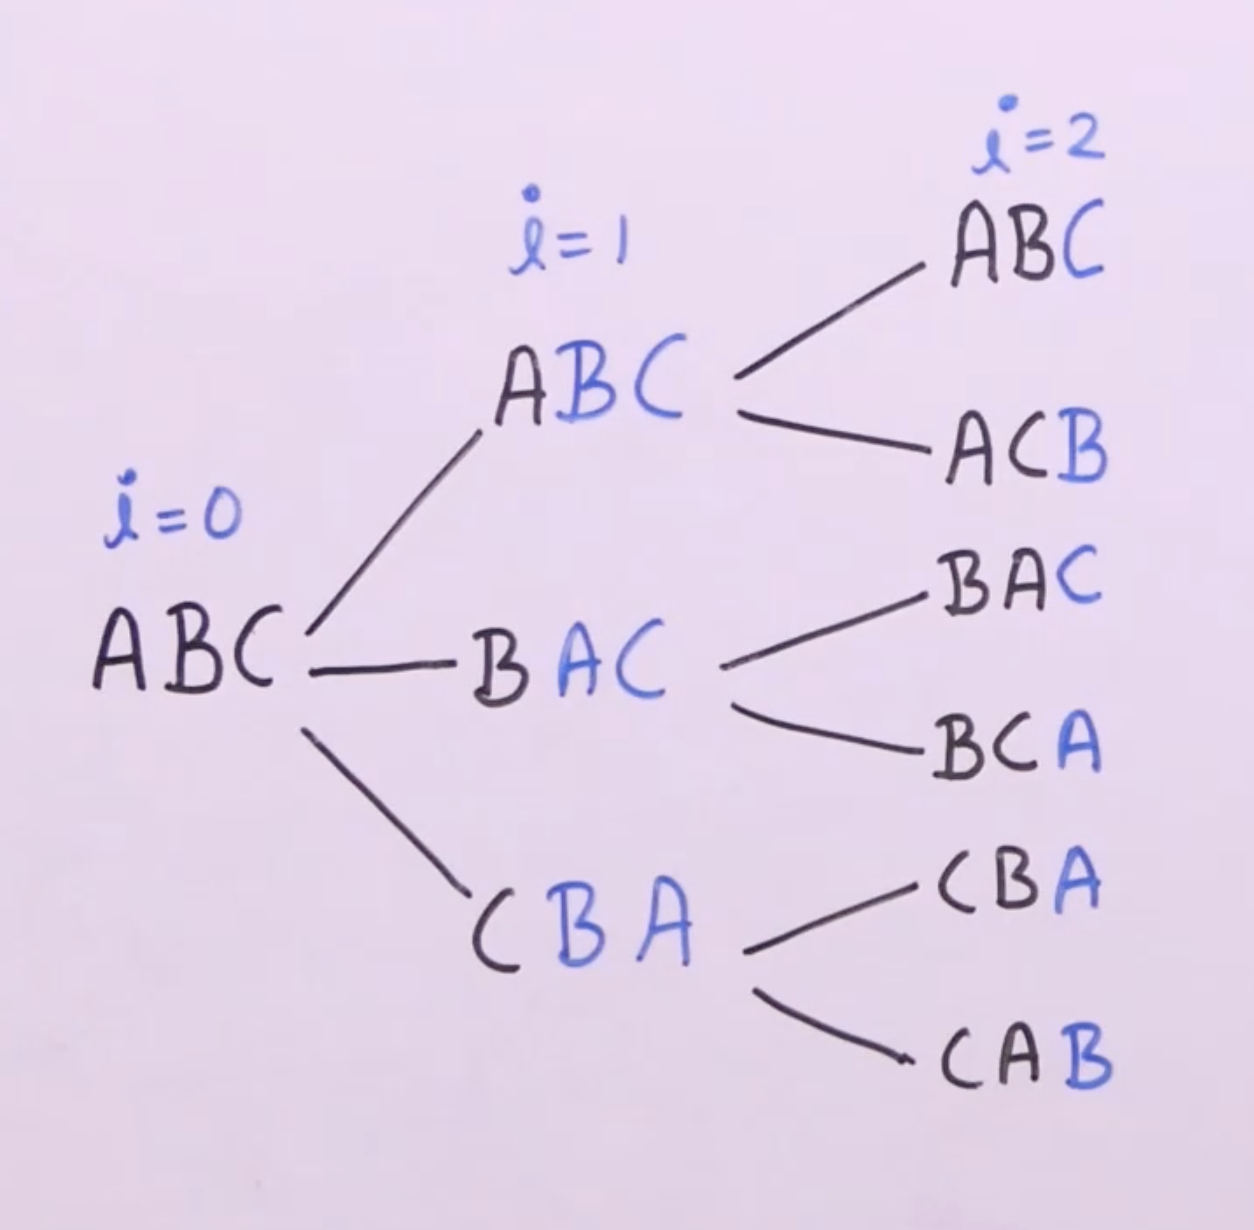 i=0
ABC
i=1
ABC
BAC
CBA
i=2
ABC
ACB
BAC
BCA
CBA
CAB